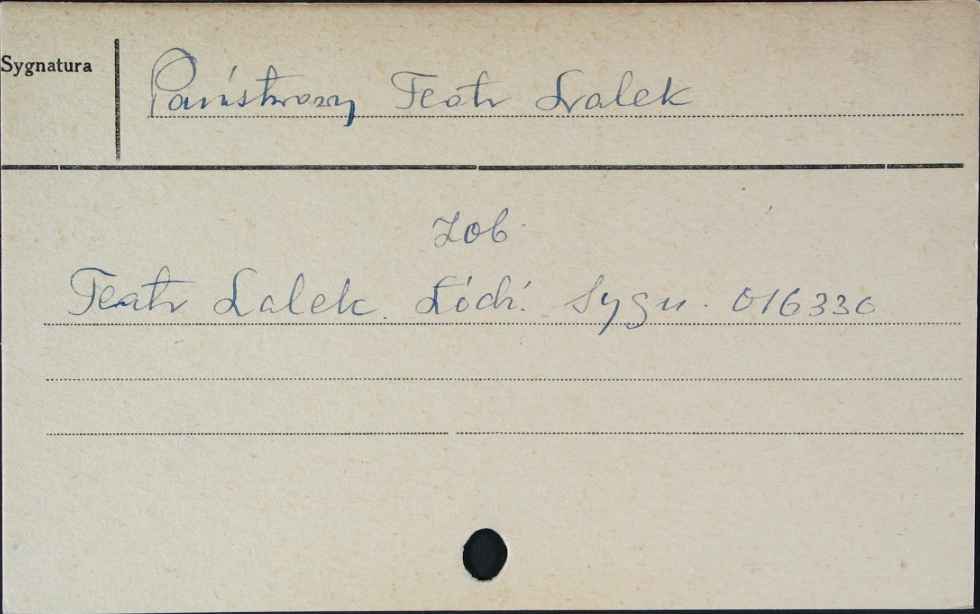 Sygnatura
Państwowy Teatr Lalek
Zob.
Teatr Lalek. Łódź. Sygn. 016330